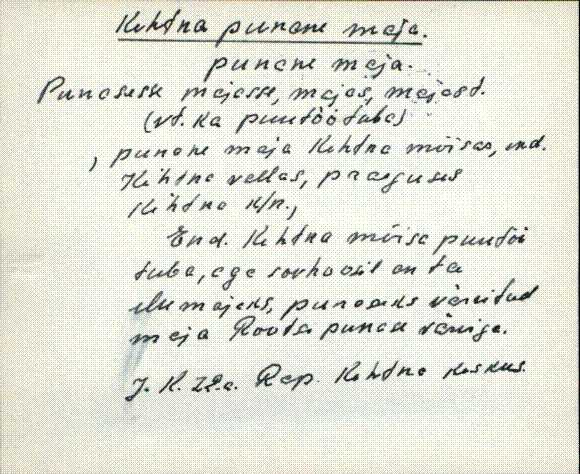 Kehtna punane maja.
punane maja.
Punasesse majasse, majas, majast.
(vt. ka puutöötuba)
, punane maja Kehtna mõisas, end.
Kehtna vallas, praeguses
Kehtna k/n.,
End. Kehtna mõisa puutöö
tuba, aga sovhoosil on ta
elumajaks, punaseks värvitud
maja Rootsi punase värviga.
J. K. 22.a. Rap. Kehtna keskus.